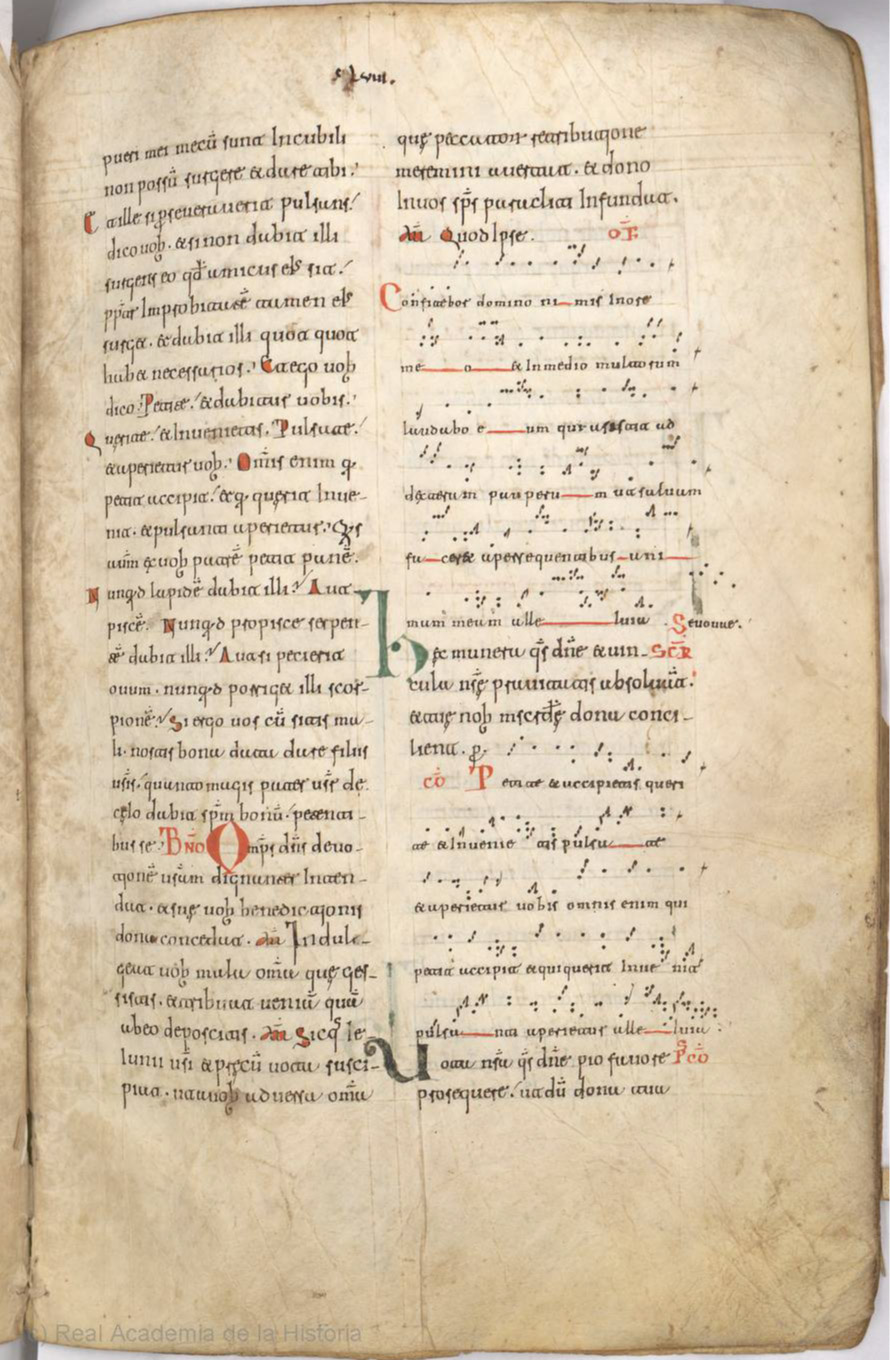 xLviii.
pueri mei mecū sunt In cubili
non possū surgere & dare tibi.
Et ille si pseueraverit pulsans.
dico uob. & si non dabit illi
surgens eo qđ amicus eiˢ sit.
ppter Improbitatē tamen eiˢ
surget. & dabit illi quot quot
habet necessarios. Et ego uob
dico. Petite. & dabitur uobis.
Querite. & Inuenietis. Pulsate.
& aperietur uob. Om̄is enim q
petit accipit. & q querit Inue-
nit. & pulsanti aperietur. Qis
aūm ex uob patrē petit panē.
Nunqd lapidē dabit illi. Aut
piscē. Nunqd pro pisce serpen-
tē dabit illi. Aut si petierit
ouum. nunqd porriget illi scor-
pionē. Si ergo uos cū sitis ma-
li. nostis bona data dare filiis
ur̄is. quanto magis pater ur̄ de
cęlo dabit spm bonū. petenti-
bus se. BN̄O Omps dn̄s deuo-
tionē uram dignanter Inten-
dat. & suę uob benedictionis
dona concedat. Am̄ Indul-
geat uob mala om̄a quę ges-
sistis. & tribuat ueniā quā
ab eo deposcitis. Am̄ Sicq ie
iunii ur̄i & precū uota susci-
piat. ut a uob aduersa om̄a
quę peccator̄ retributione
meremini auertat. & dono
In uos sp̄s paracliti Infundat.
Am̄ Quod Ipse. OF̄
Confitebor domino ni mis In ore
me o & In medio multorum
laudabo e um qui astitit ad
dexteram pauperu m ut saluam
fa ceret a persequentibus ani
mam meam alle luia . Seuouae.
Hęc munera qs dn̄e & uin- SCR̄
cula nr̄ę prauitatis absoluat.
& tuę nob miscdię dona conci-
lient. p.
CŌ Petite & accipietis queri
te & Inuenie tis pulsa te
& aperietur uobis omnis enim qui
petit accipit & qui querit Inue nit
pulsa nti aperietur alle luia
Uota nr̄a qs dn̄e pio fauore P̄CŌ
prosequere. ut dū dona tua
© Real Academia de la Historia